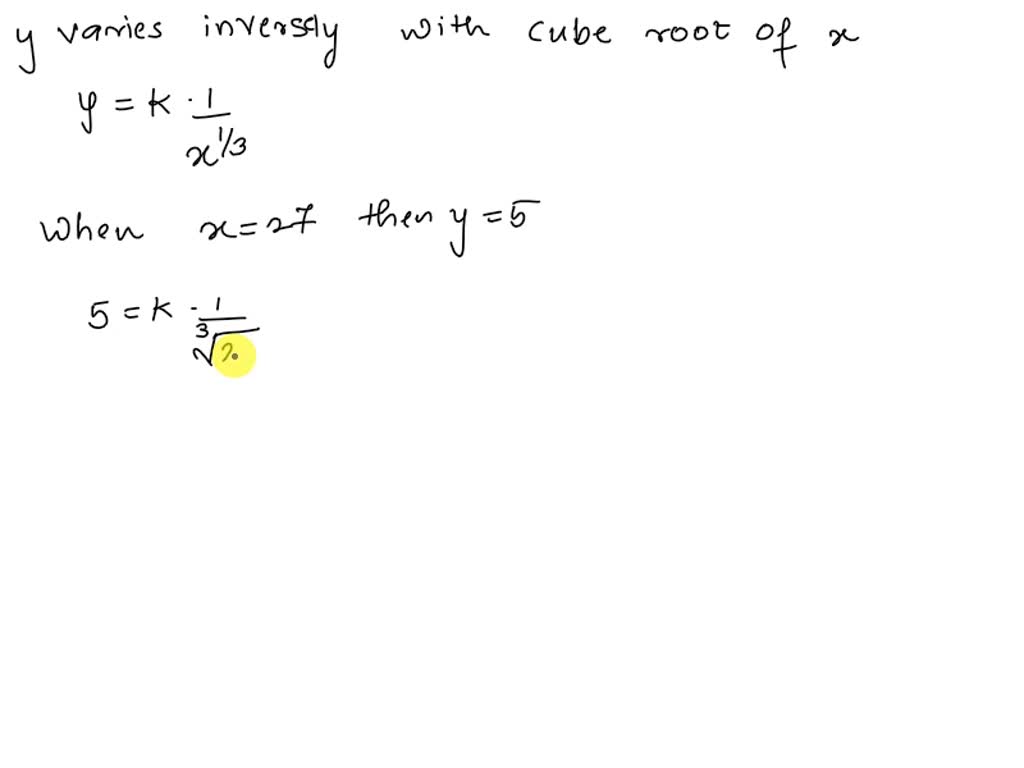 y varies inversely with cube root of x
y = k · 1/x^1/3
when x = 27 then y = 5
5 = k · 1/∛2